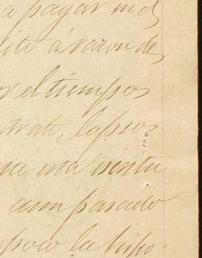 a pagar md
ite á razon de
r el tiempo
trato, lapso
na una venta
aun pasado
poco la hipo-